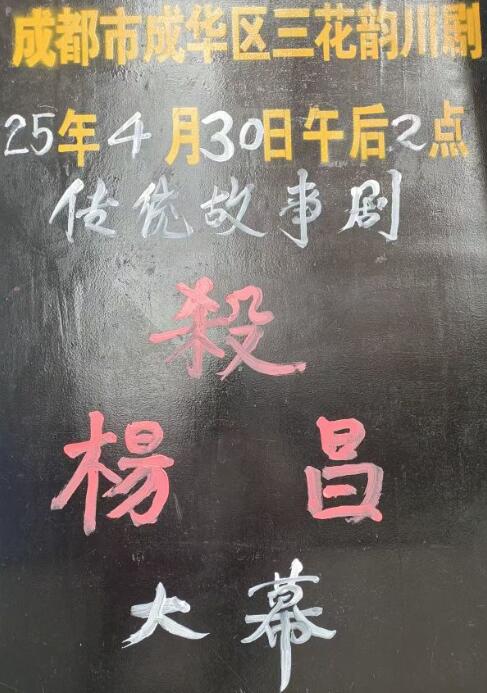 成都市成华区三花韵川剧
25年4月30日午后2点
传统故事剧
殺
楊昌
大幕